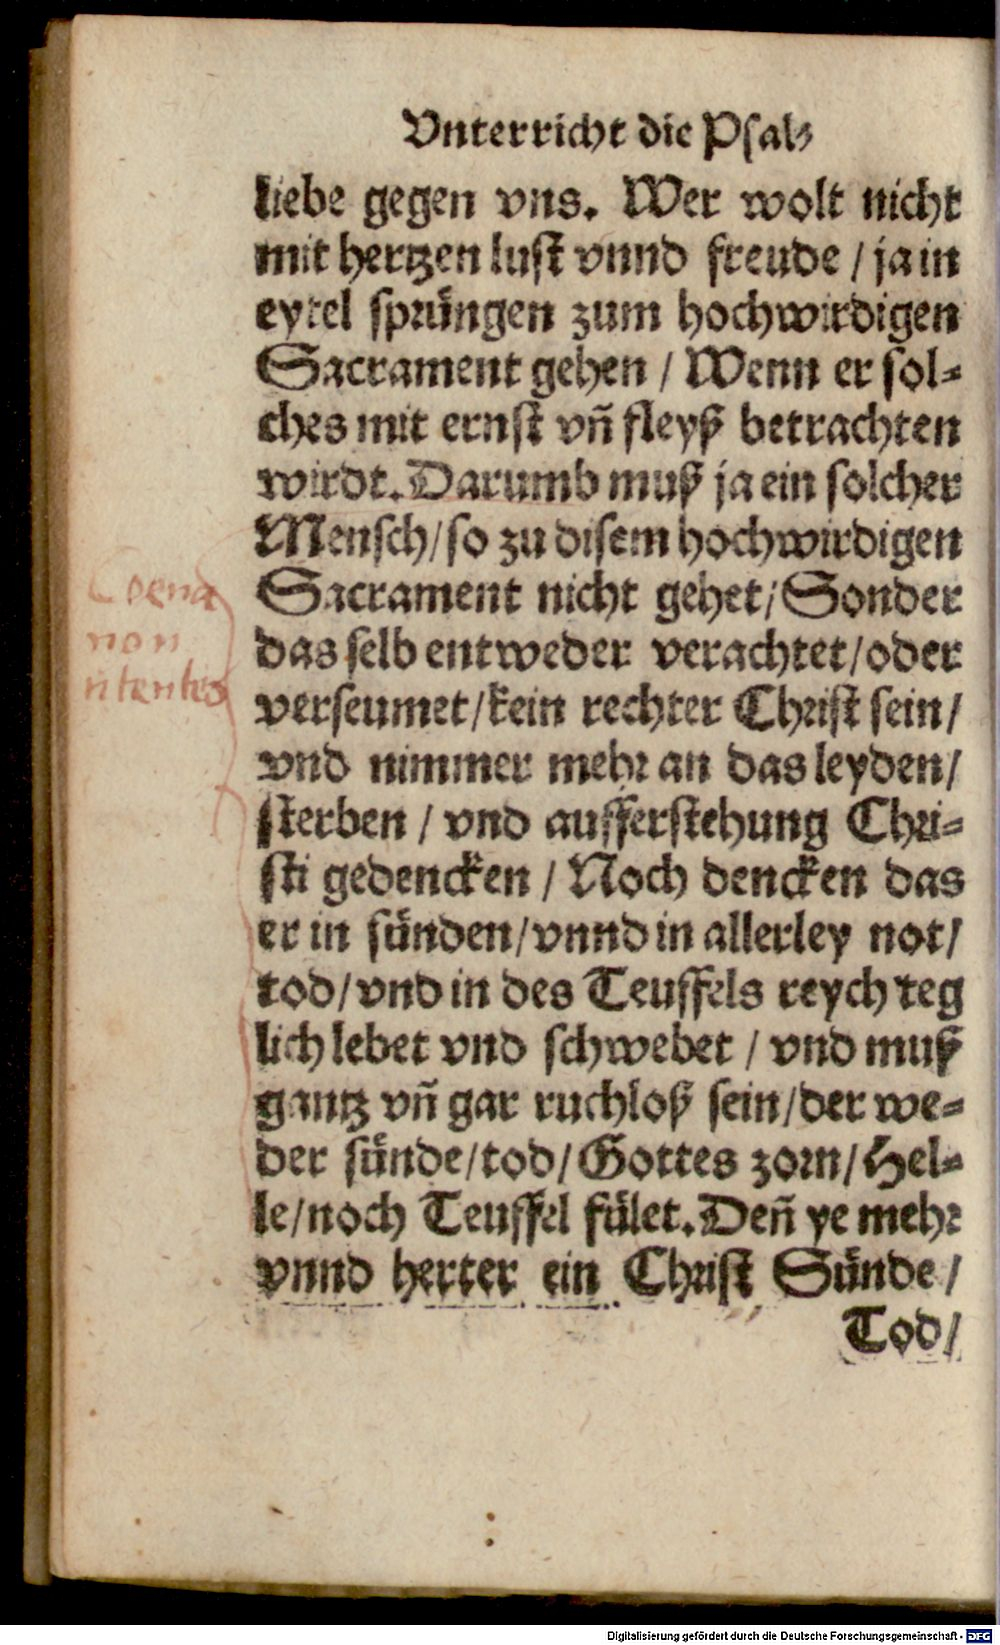 Vnterricht die Psal⸗
liebe gegen vns. Wer wolt nicht
mit hertzen lust vnnd freude / ja in
eytel sprüngen zum hochwirdigen
Sacrament gehen / Wenn er sol⸗
ches mit ernst vñ fleyß betrachten
wirdt. Darumb muß ja ein solcher
Mensch / so zu disem hochwirdigen
Coena
Sacrament nicht gehet / Sonder
non
das selb entweder verachtet / oder
verseumet / kein rechter Christ sein /
vnd nimmer mehr an das leyden /
sterben / vnd aufferstehung Chri⸗
sti gedencken / Noch dencken das
er in sünden / vnnd in allerley not /
tod / vnd in des Teuffels reych teg
lich lebet vnd schwebet / vnd muß
gantz vñ gar ruchloß sein / der we⸗
der sünde / tod / Gottes zorn / Hel⸗
le / noch Teuffel fület. Deñ ye mehr
vnnd herter ein Christ Sünde /
Tod /
Digitalisierung gefördert durch die Deutsche Forschungsgemeinschaft - DFG